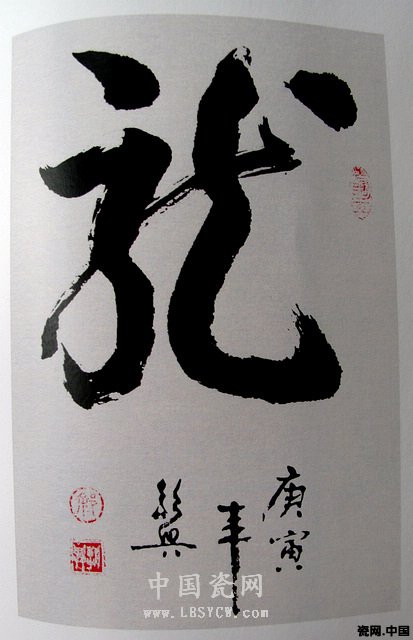 龍
庚寅
年
中国瓷网
www.LBSYCW.com
瓷网.中国